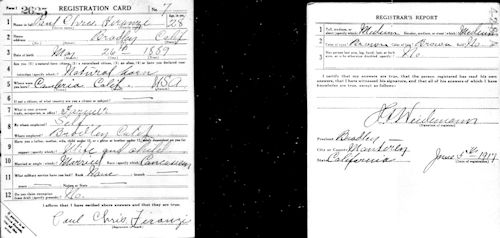 Form 1 REGISTRATION CARD No. 7
1 Name in full Paul Chris Firanzi Age, in yrs. 28
2 Home address Bradley Calif
3 Date of birth May 26th 1889
4 Are you (1) a natural-born citizen, (2) a naturalized citizen, (3) an alien, (4) or have you declared your intention (specify which)? Natural born
5 Where were you born? Cambria Calif. USA
6 If not a citizen, of what country are you a citizen or subject?
7 What is your present trade, occupation, or office? Farmer
8 By whom employed? Self
Where employed? Bradley Calif
9 Have you a father, mother, wife, child under 12, or a sister or brother under 12, solely dependent on you for support (specify which)? Wife and
10 Married or single (which)? Married Race (specify which)? Caucasian
11 What military service have you had? Rank None ; branch
years ; Nation or State
12 Do you claim exemption from draft (specify grounds)? No
I affirm that I have verified above answers and that they are true.
Paul Chris Firanzi
REGISTRAR'S REPORT
1 Tall, medium, or short (specify which)? Medium Slender, medium, or stout (which)? Medium
2 Color of eyes? Brown Color of hair? Brown Bald? No
3 Has person lost arm, leg, hand, foot, or both eyes, or is he otherwise disabled (specify)? No
I certify that my answers are true, that the person registered has read his own answers, that I have witnessed his signature, and that all of his answers of which I have knowledge are true, except as follows:
Weidemann
Precinct Bradley
City or County Monterey
State California June 5th 1917